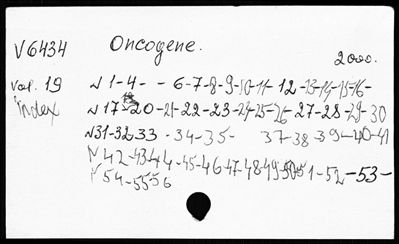 V6434 Oncogene. 2000.
Vol. 19 N 1-4- - 6-7-8-9-10-11- 12-13-14-15-16-
index N 17-18-20-21-22-23-24-25-26-27-28-29-30
N31-32 33 - 34-35- 37-38-39-40-41
N 42-43 44-45-46 47-48-49-50-51-52-53-
N 54-55 56